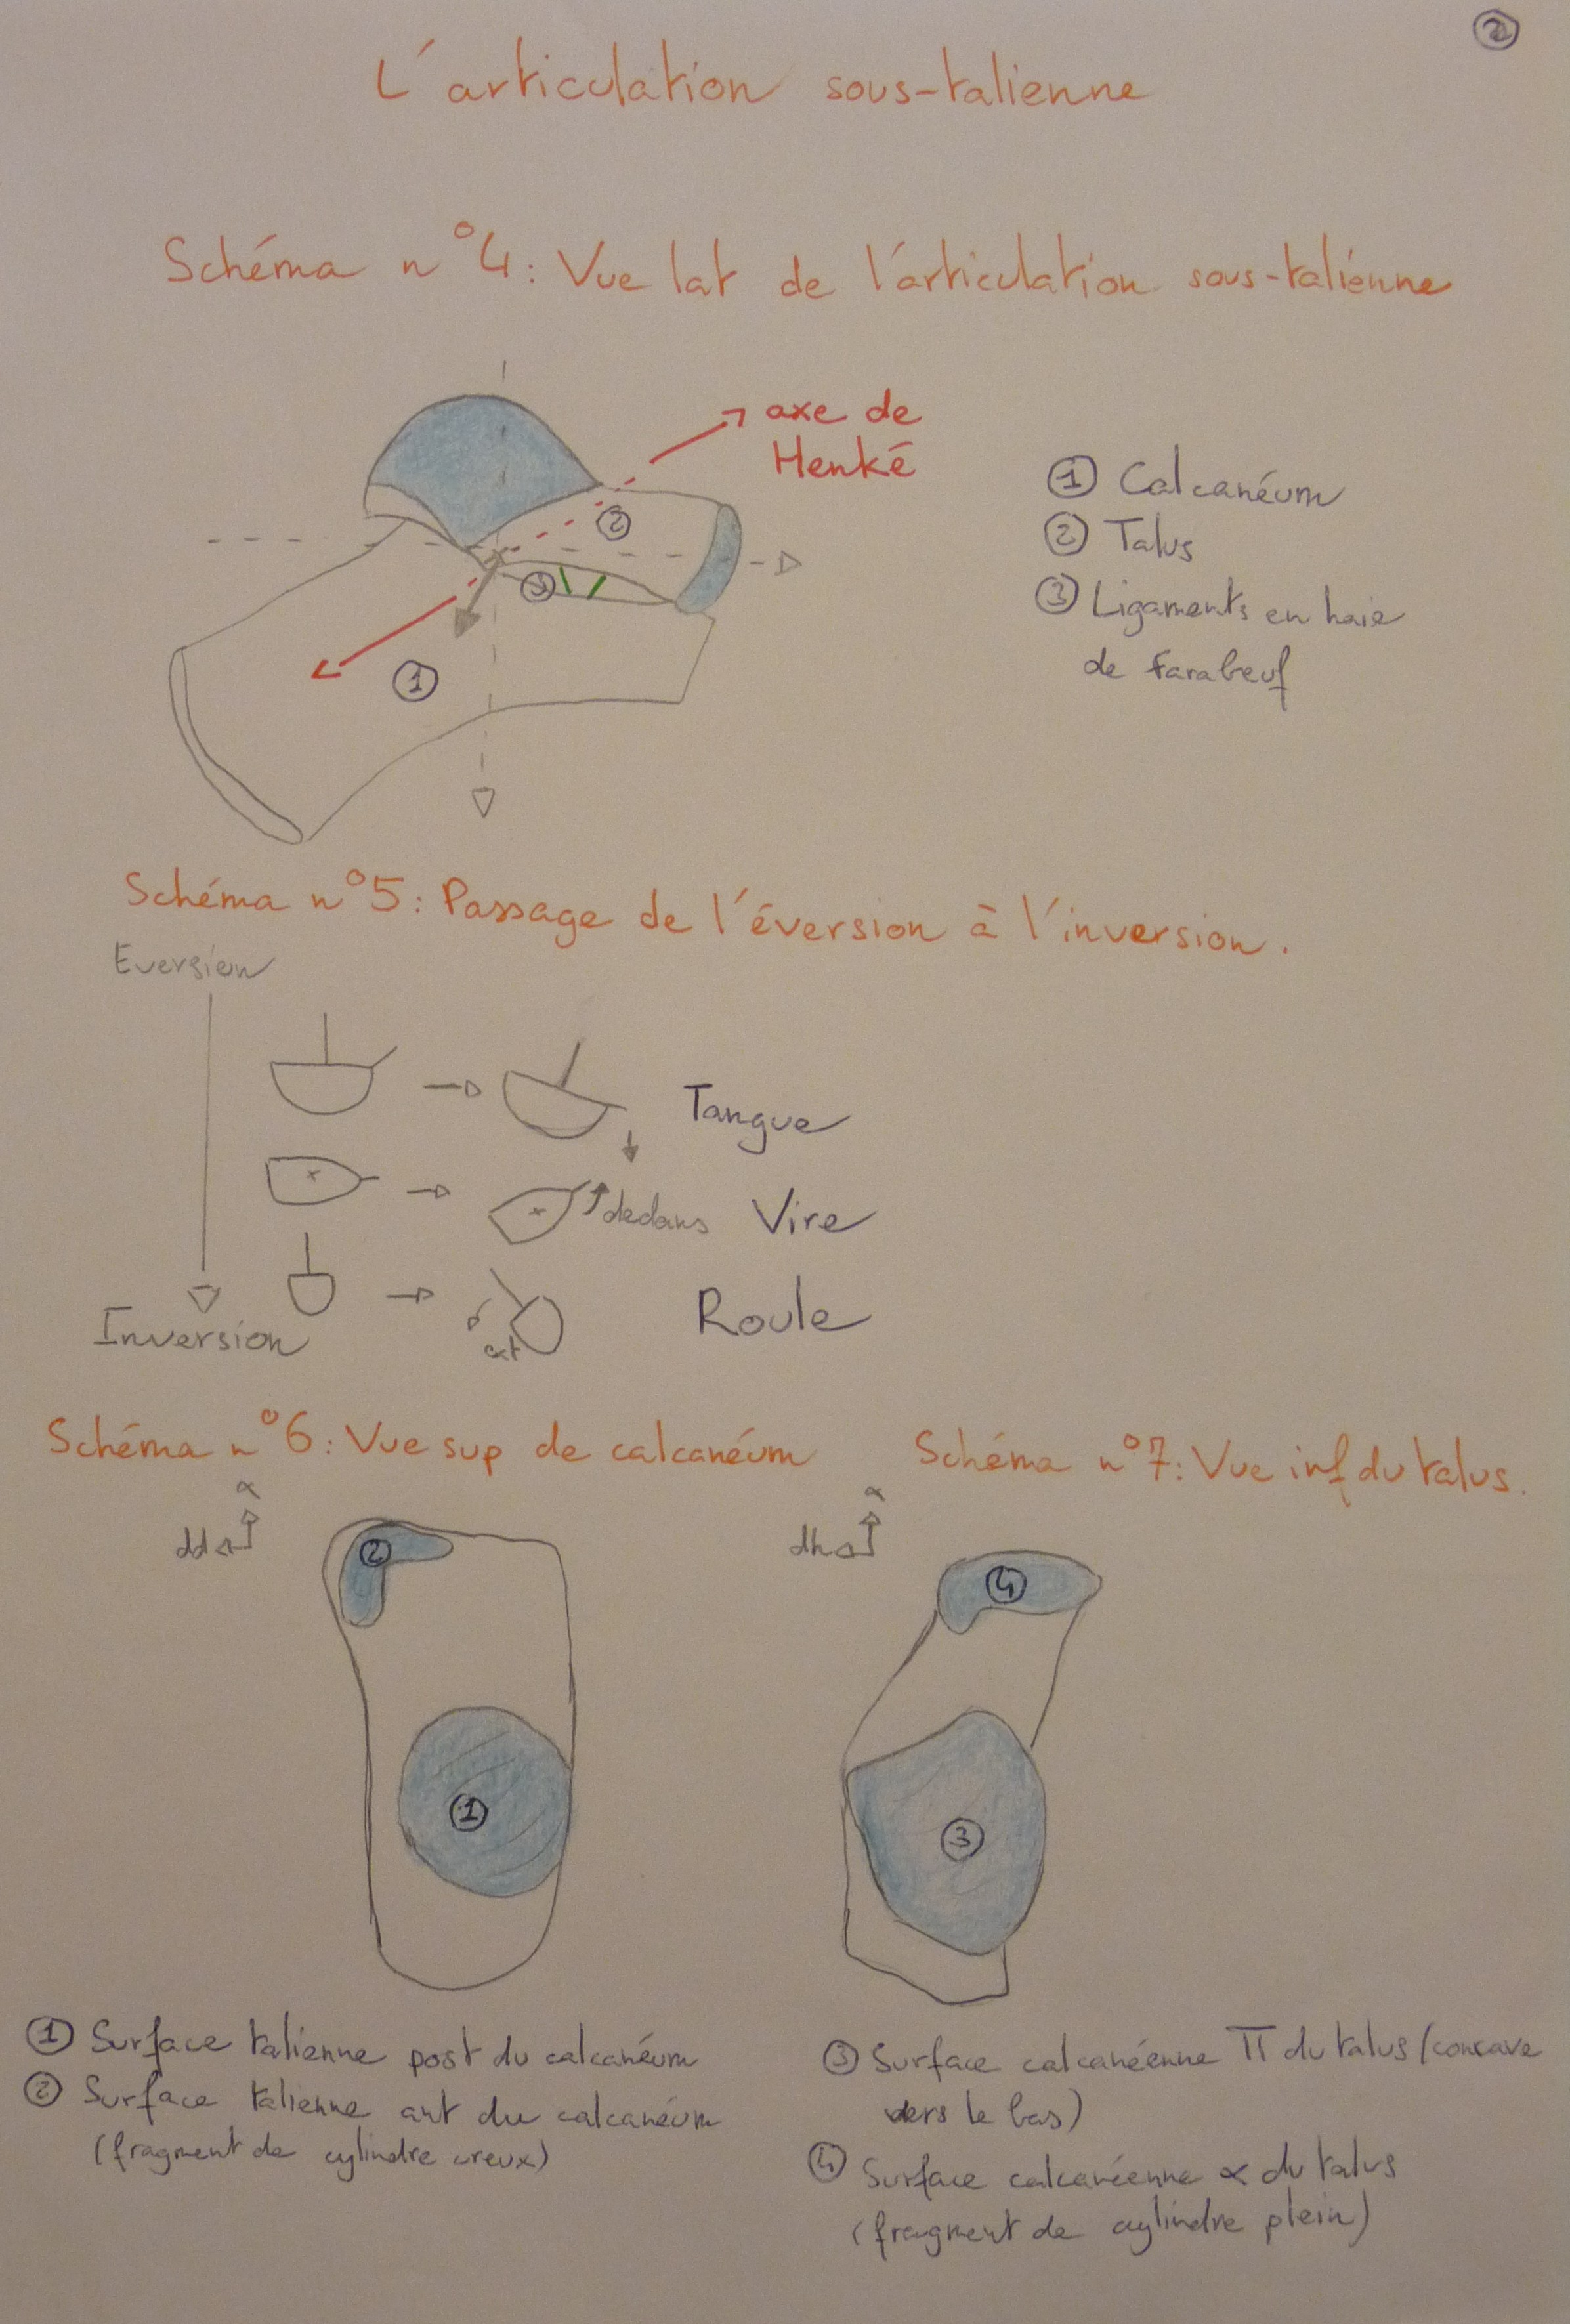 ②
L'articulation sous-talienne
Schéma n°4: Vue lat de l'articulation sous-talienne
axe de
Henké
① Calcanéum
② Talus
③ Ligaments en haie
de Farabeuf
②
③
①
Schéma n°5: Passage de l'éversion à l'inversion.
Eversion
Tangue
dedans Vire
Roule
ext
Inversion
Schéma n°6: Vue sup de calcanéum
Schéma n°7: Vue inf du talus.
α
dd
α
dh
②
④
①
③
① Surface talienne post du calcanéum
② Surface talienne ant du calcanéum
(fragment de cylindre creux)
③ Surface calcanéenne π du talus (concave
vers le bas)
④ Surface calcanéenne α du talus
(fragment de cylindre plein)